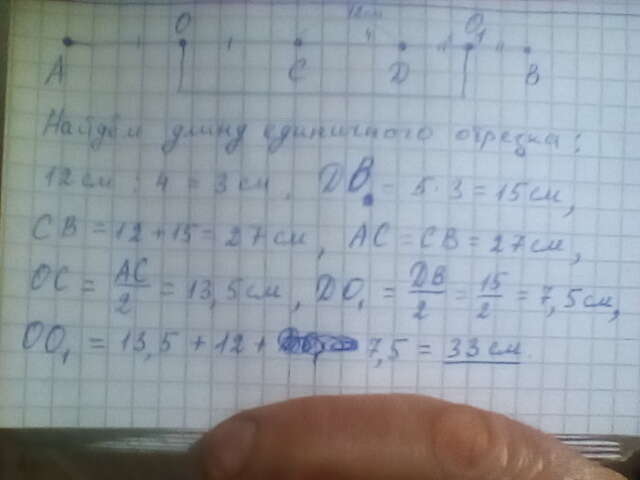 O 12см O₁
A C D B
Найдём длину единичного отрезка:
12см : 4 = 3см. DB = 5·3 = 15см,
CB = 12 + 15 = 27см, AC = CB = 27см,
OC = AC/2 = 13,5см, DO₁ = DB/2 = 15/2 = 7,5см,
OO₁ = 13,5 + 12 + 7,5 = 33см.